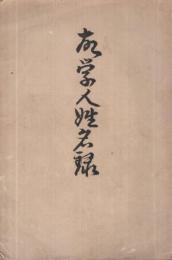 故学人姓名録